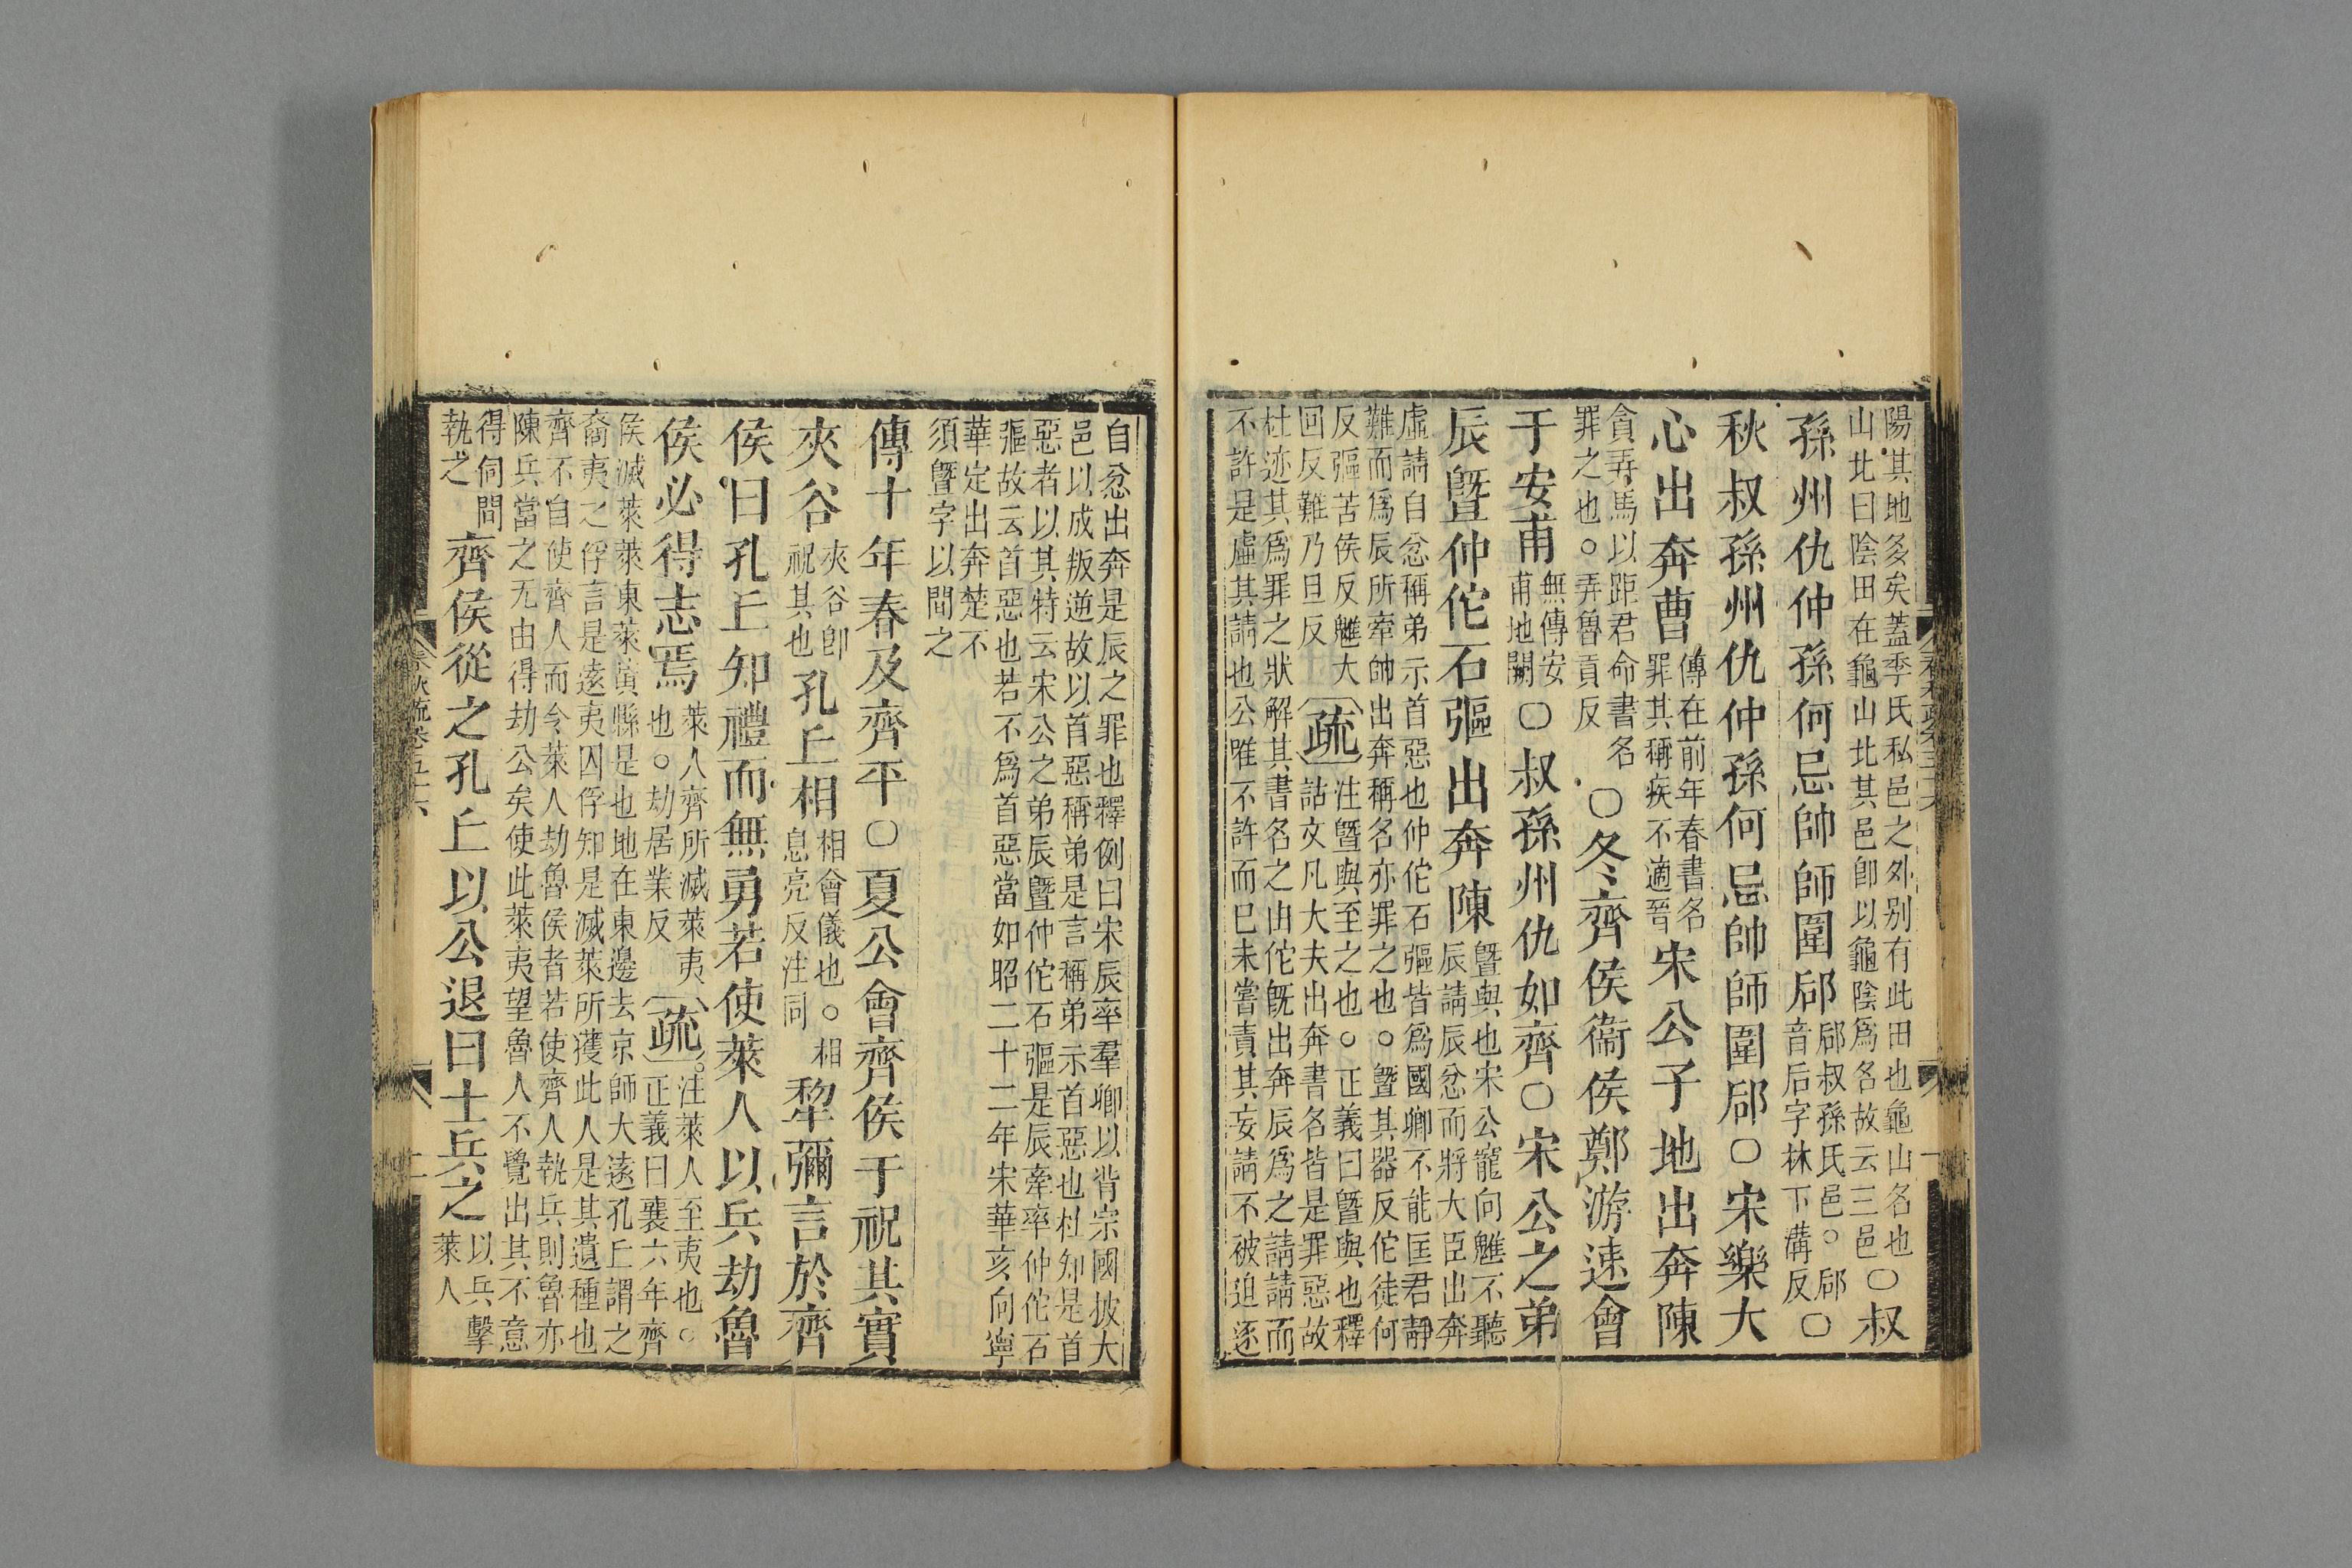 陽其地多矣蓋季氏私邑之外别有此田也龜山名也
山北曰陰田在龜山北其邑卽以龜陰爲名故云三邑〇叔
孫州仇仲孫何忌帥師圍郈郈叔孫氏邑。郈音后字林下溝反〇
秋叔孫州仇仲孫何忌帥師圍郈〇宋樂大
心出奔曹傳在前年春書名罪其稱疾不適晉宋公子地出奔陳
貪弄馬以距君命書名罪之也。弄魯貢反〇冬齊侯衞侯鄭游速會
于安甫無傳安甫地闕〇叔孫州仇如齊〇宋公之弟
辰曁仲佗石彄出奔陳曁與也宋公寵向魋不聽辰請辰忿而將大臣出奔
虛請自忿稱弟示首惡也仲佗石彄皆爲國卿不能匡君靜
難而爲辰所牽帥出奔稱名亦罪之也。曁其器反佗徒何
反彄苦侯反魋大回反難乃旦反疏注曁與至之也。正義曰曁與也釋
詁文凡大夫出奔書名皆是罪惡故
杜迹其爲罪之狀解其書名之由佗旣出奔辰爲之請請而
不許是虛其請也公唯不許而已未嘗責其妄請不被迫逐
自忿出奔是辰之罪也釋例曰宋辰率羣卿以背宗國披大
邑以成叛逆故以首惡稱弟是言稱弟示首惡也杜知是首
惡者以其特云宋公之弟辰曁仲佗石彄是辰牽率仲佗石
彄故云首惡也若不爲首惡當如昭二十二年宋華亥向寧
華定出奔楚不
須曁字以間之
傳十年春及齊平〇夏公會齊侯于祝其實
夾谷夾谷卽祝其也孔丘相相會儀也。相息亮反注同犂彌言於齊
侯曰孔丘知禮而無勇若使萊人以兵劫魯
侯必得志焉萊人齊所滅萊夷也。劫居業反疏注萊人至夷也。正義曰襄六年齊
侯滅萊萊東萊黃縣是也地在東邊去京師大遠孔丘謂之
裔夷之俘言是遠夷囚俘知是滅萊所獲此人是其遺種也
齊不自使齊人而令萊人劫魯侯者若使齊人執兵則魯亦
陳兵當之无由得劫公矣使此萊夷望魯人不覺出其不意
得伺間執之齊侯從之孔丘以公退曰士兵之以兵擊萊人